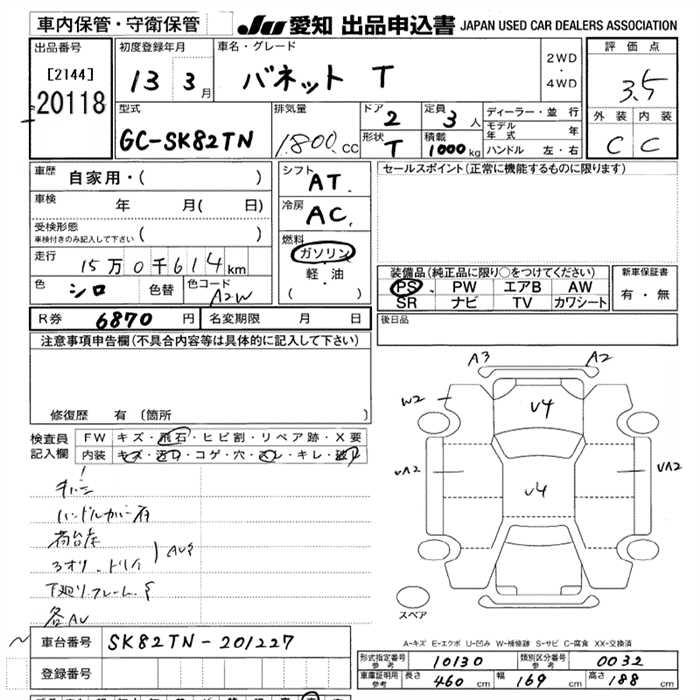 車内保管・守衛保管 JU 愛知 出品申込書 JAPAN USED CAR DEALERS ASSOCIATION
出品番号 初度登録年月 車名・グレード 2WD・4WD 評価点
[2144] 13 3月 バネット T 3.5
20118 型式 排気量 ドア 2 定員 3人 ディーラー・並行 外装 内装
GC-SK82TN 1,800.cc 形状 T 積載 1000kg モデル年式 年 C C
ハンドル 左・右
車歴 自家用・( ) シフト AT. セールスポイント(正常に機能するものに限ります)
車検 年 月( 日) 冷房 AC.
受検形態 ( )
車検付きのみ記入して下さい
燃料 ガソリン
走行 15万0千614km 軽・油
装備品(純正品に限り○をつけてください) 新車保証書
色 シロ 色替 色コード A2W ( ・ ) PS、 PW エアB AW 有・無
SR ナビ TV カワシート
R券 6870円 名変期限 月 日 後日品
注意事項申告欄(不具合内容等は具体的に記入して下さい)
修復歴 有(箇所
検査員記入欄 FW キズ・飛石・ヒビ割・リペア跡・X要
内装 キズ・汚れ・コゲ・穴・スレ・キレ・破れ
A3 A2
W2 V4
UA2 V4 UA2
ハンドルカバー有
荷台床
各AU
スペア
A-キズ E-エクボ U-凹み W-補修跡 S-サビ C-腐食 XX-交換済
車台番号 SK82TN-201227
登録番号
形式指定番号参考 10130 類別区分番号参考 0032
車庫証明用参考 長さ 460cm 幅 169cm 高さ 188cm